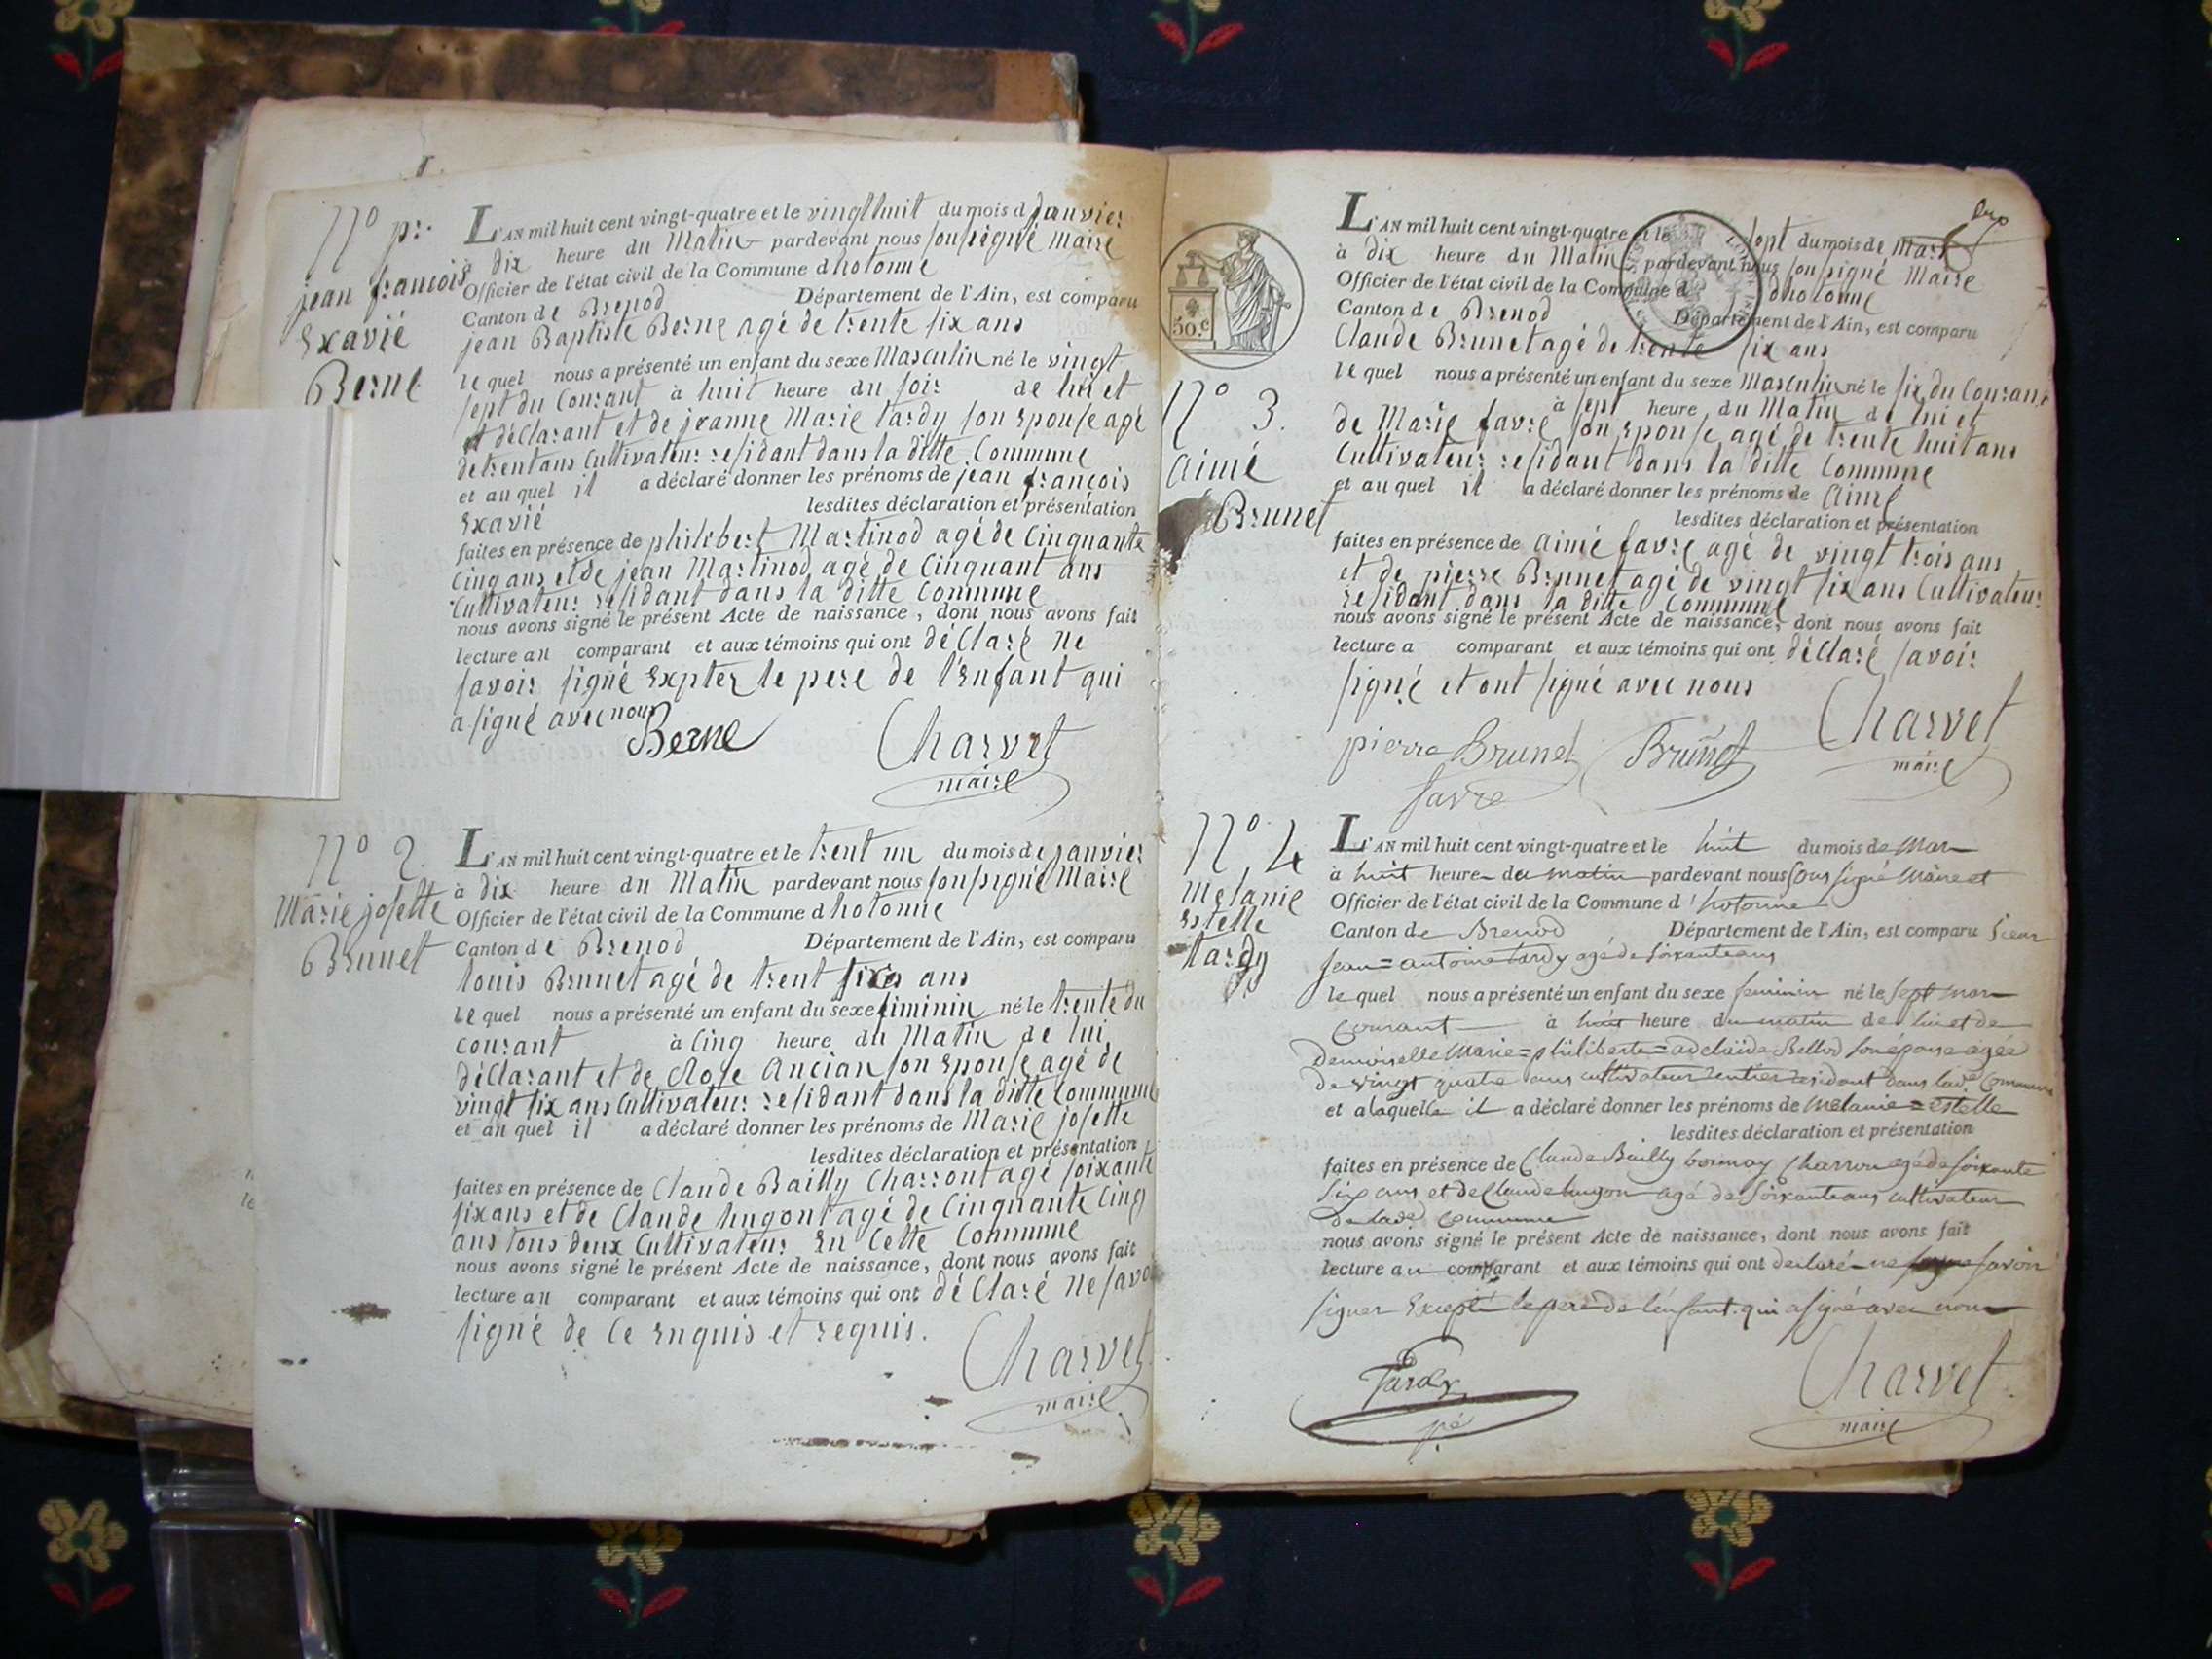 N° pr.
jean françois
Exavié
Berne
L'AN mil huit cent vingt-quatre et le vingt huit du mois de janvier
à dix heure du Matin pardevant nous soussigné Maire
Officier de l'état civil de la Commune dhotonne
Canton de Brenod Département de l'Ain, est comparu
jean Baptiste Berne agé de trente six ans
le quel nous a présenté un enfant du sexe Masculin né le vingt
sept du Courant à huit heure du soir de lui et
déclarant et de jeanne Marie tardy son Epouse agé
de trent ans Cultivateur residant dans la ditte Commune
et au quel il a déclaré donner les prénoms de jean françois
Exavié lesdites déclaration et présentation
faites en présence de philibert Martinod agé de Cinquante
Cinq ans et de jean Martinod agé de Cinquant ans
Cultivateur residant dans la ditte Commune
nous avons signé le présent Acte de naissance, dont nous avons fait
lecture au comparant et aux témoins qui ont déClaré ne
savoir signé Expter le pere de l'Enfant qui
a signé avec nous
Berne Charvet
maire
N° 2.
Marie josette
Brunet
L'AN mil huit cent vingt-quatre et le trent un du mois de janvier
à dix heure du Matin pardevant nous soussigné Maire
Officier de l'état civil de la Commune dhotonne
Canton de Brenod Département de l'Ain, est comparu
louis Brunet agé de trent six ans
le quel nous a présenté un enfant du sexe fiminin né le trente du
courant à Cinq heure du Matin de lui
déClarant et de Rose Ancian son Epouse agé de
vingt six ans Cultivateur residant dans la ditte Commune
et au quel il a déclaré donner les prénoms de Marie josette
lesdites déclaration et présentation
faites en présence de Claude Bailly Charront agé soixante
six ans et de Claude hugont agé de Cinquante Cinq
ans tous deux Cultivateur En Cette Commune
nous avons signé le présent Acte de naissance, dont nous avons fait
lecture au comparant et aux témoins qui ont déClaré ne savoir
signé de Ce Enquis et requis.
Charvet
maire
50.c
N° 3.
aimé
Brunet
L'AN mil huit cent vingt-quatre et le sept du mois de Mars
à dix heure du Matin pardevant nous soussigné Maire
Officier de l'état civil de la Commune d dhotonne
Canton de Brenod Département de l'Ain, est comparu
Claude Brunet agé de trente six ans
le quel nous a présenté un enfant du sexe Masculin né le six du Courant
à sept heure du Matin de lui et
de Marie favre son Epouse agé de trente huit ans
Cultivateur residant dans la ditte Commune
et au quel il a déclaré donner les prénoms de aimé
lesdites déclaration et présentation
faites en présence de aimé favre agé de vingt trois ans
et de pierre Brunet agé de vingt six ans Cultivateur
residant dans la ditte Commune
nous avons signé le présent Acte de naissance, dont nous avons fait
lecture a comparant et aux témoins qui ont déClaré savoir
signé et ont signé avec nous
pierre Brunet Brunet Charvet
maire
favre
N° 4
Melanie
Estelle
tardy
L'AN mil huit cent vingt-quatre et le huit du mois de Mars
à huit heure du matin pardevant nous soussigné Maire et
Officier de l'état civil de la Commune d'hotonne
Canton de Brenod Département de l'Ain, est comparu Sieur
Jean=antoine tardy agé de soixante ans
le quel nous a présenté un enfant du sexe feminin né le sept mars
courant à huit heure du matin de lui et de
demoiselle Marie=philiberte=adelaïde Bellod son épouse agée
de vingt quatre ans cultivateur rentier residant dans lade Commune
et a laquelle il a déclaré donner les prénoms de Melanie=estelle
lesdites déclaration et présentation
faites en présence de Claude Bailly Charron agé de soixante
six ans et de Claude hugon agé de soixante ans cultivateur
de lade commune
nous avons signé le présent Acte de naissance, dont nous avons fait
lecture au comparant et aux témoins qui ont declaré ne savoir
signer Excepté le pere de l'enfant qui a signé avec nous
Tardy
pé
Charvet
maire